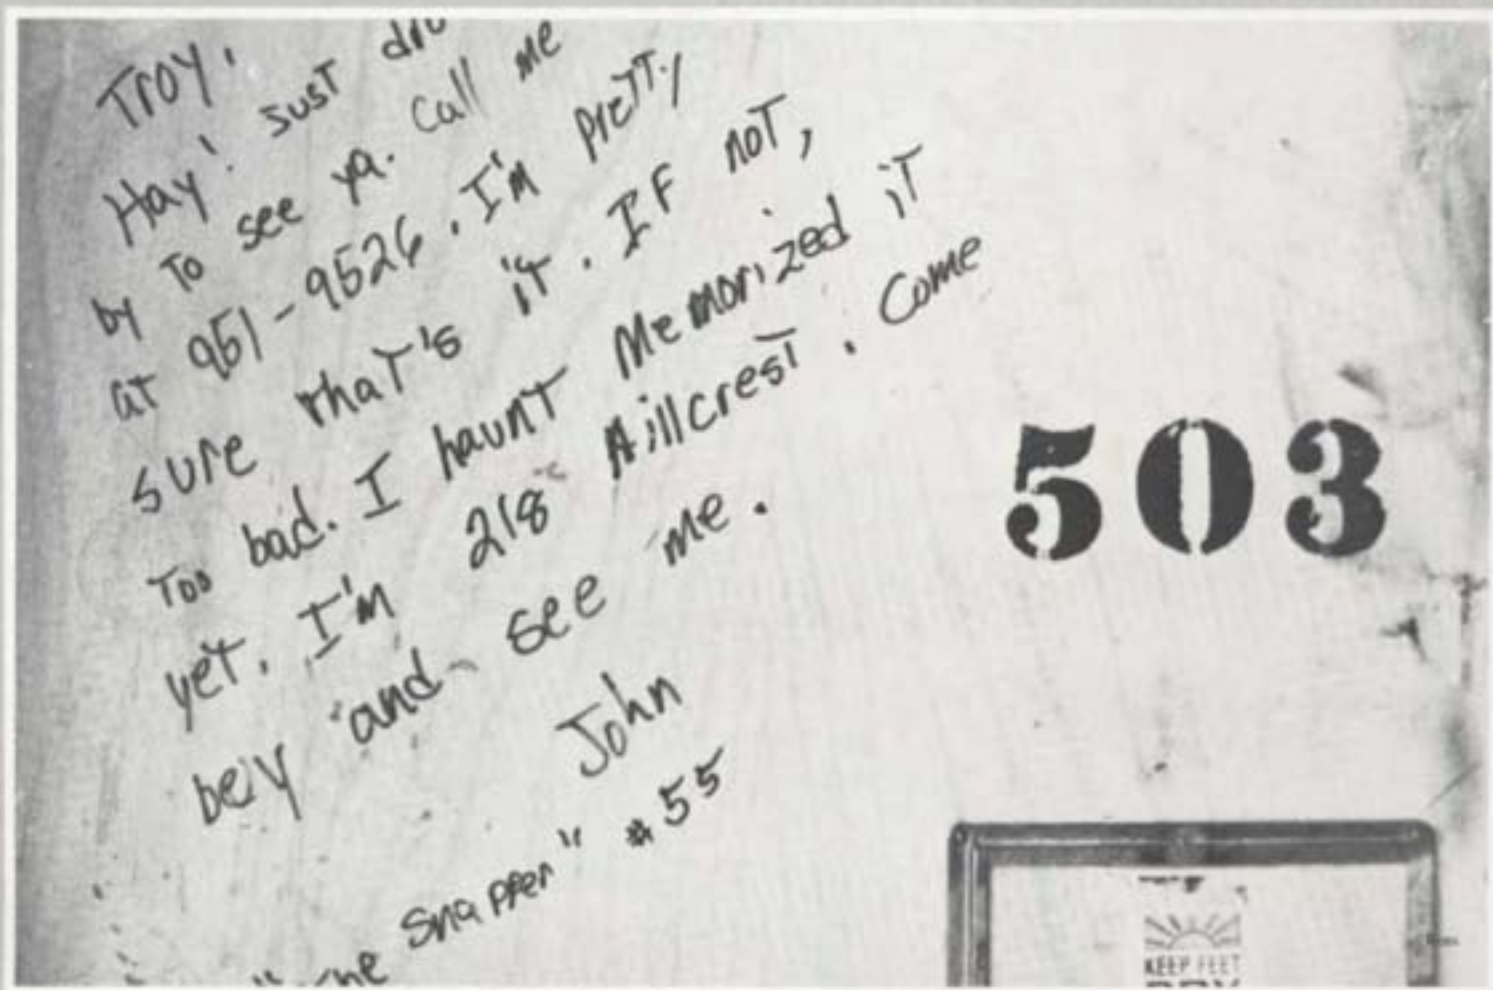 Troy,
Hay! Just
by To see ya. Call me
at 951-9526. I'm pretty
sure that's it. IF not,
Too bad. I haunt Memorized it
yet. I'm 218 Hillcrest. Come
beiy and see me.
John
Snapper" #55
503
KEEP FEET
DRY